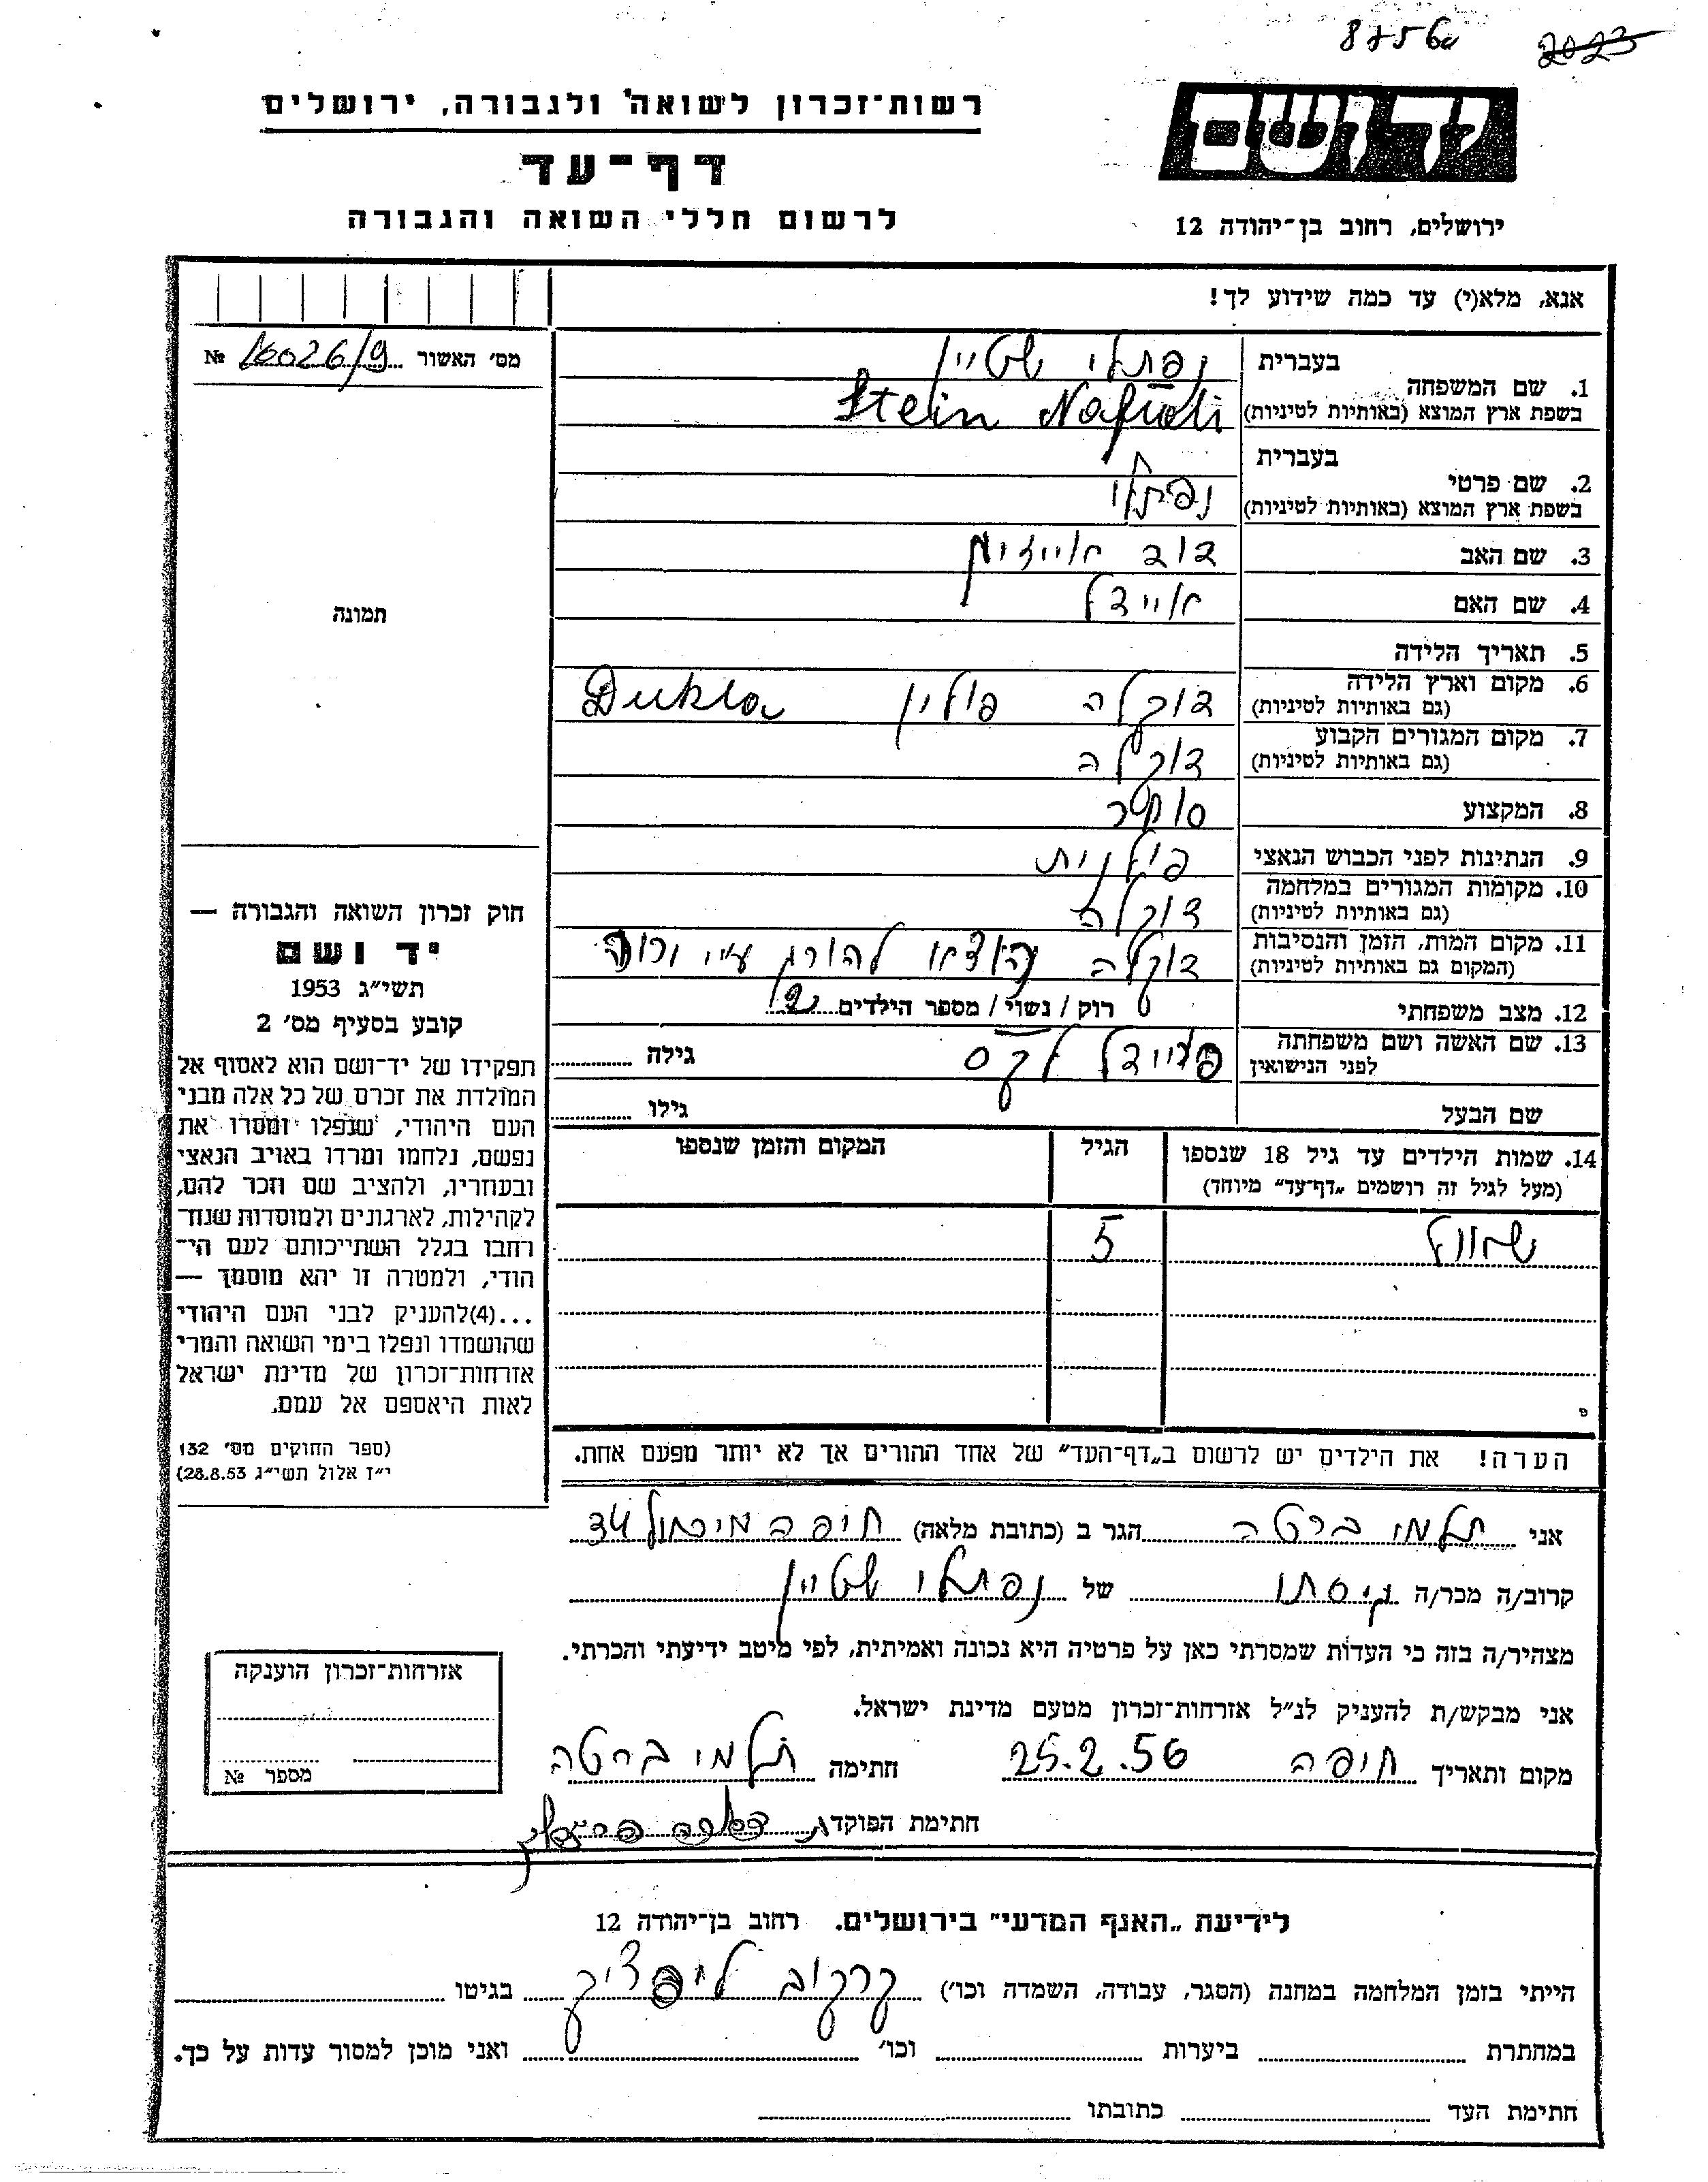 8756
2023
רשות־זכרון לשואה ולגבורה, ירושלים
יד ושם
דף־עד
לרשום חללי השואה והגבורה
ירושלים, רחוב בן־יהודה 12
אנא, מלא(י) עד כמה שידוע לך!
מס׳ האשור 16026/9 №
בעברית נפתלי שטיין
1. שם המשפחה
בשפת ארץ המוצא (באותיות לטיניות) Stein Naftali
בעברית
2. שם פרטי נפתלי
בשפת ארץ המוצא (באותיות לטיניות)
3. שם האב דוב
4. שם האם איידל
תמונה
5. תאריך הלידה
6. מקום וארץ הלידה דוקלה פולין Dukla
(גם באותיות לטיניות)
7. מקום המגורים הקבוע דוקלה
(גם באותיות לטיניות)
8. המקצוע סוחר
9. הנתינות לפני הכבוש הנאצי פולנית
10. מקומות המגורים במלחמה דוקלה
(גם באותיות לטיניות)
11. מקום המות, הזמן והנסיבות דוקלה הוצא להורג ע״י
(המקום גם באותיות לטיניות)
12. מצב משפחתי רוק / נשוי / מספר הילדים
13. שם האשה ושם משפחתה
לפני הנישואין פיידל גילה
שם הבעל גילו
14. שמות הילדים עד גיל 18 שנספו הגיל המקום והזמן שנספו
(מעל לגיל זה רושמים „דף־עד״ מיוחד)
5
הערה! את הילדים יש לרשום ב„דף־העד״ של אחד ההורים אך לא יותר מפעם אחת.
חוק זכרון השואה והגבורה —
יד ושם
תשי״ג 1953
קובע בסעיף מס׳ 2
תפקידו של יד־ושם הוא לאסוף אל
המולדת את זכרם של כל אלה מבני
העם היהודי, שנפלו ומסרו את
נפשם, נלחמו ומרדו באויב הנאצי
ובעוזריו, ולהציב שם וזכר להם,
לקהילות, לארגונים ולמוסדות שנח־
רחבו בגלל השתייכותם לעם הי־
הודי, ולמטרה זו יהא מוסמך —
...(4)להעניק לבני העם היהודי
שהושמדו ונפלו בימי השואה והמרי
אזרחות־זכרון של מדינת ישראל
לאות היאספם אל עמם.
(ספר החוקים מס׳ 132
י״ז אלול תשי״ג 28.8.53)
אני תלמי ברטה הגר ב (כתובת מלאה) חיפה מיכאל 34
קרוב/ה מכר/ה גיסתו של נפתלי שטיין
מצהיר/ה בזה כי העדות שמסרתי כאן על פרטיה היא נכונה ואמיתית, לפי מיטב ידיעתי והכרתי.
אני מבקש/ת להעניק לנ״ל אזרחות־זכרון מטעם מדינת ישראל.
מקום ותאריך חיפה 25.2.56 חתימה תלמי ברטה
חתימת הפוקד
אזרחות־זכרון הוענקה
מספר №
לידיעת „האגף המדעי״ בירושלים. רחוב בן־יהודה 12
הייתי בזמן המלחמה במחנה (הסגר, עבודה, השמדה וכו׳) קרקוב לייפציג בגיטו
במחתרת ביערות וכו׳ ואני מוכן למסור עדות על כך.
חתימת העד כתובתו